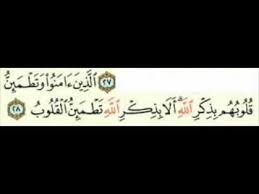 ٢٧ ٱلَّذِينَ ءَامَنُوا۟ وَتَطْمَئِنُّ
قُلُوبُهُم بِذِكْرِ ٱللَّهِ ۗ أَلَا بِذِكْرِ ٱللَّهِ تَطْمَئِنُّ ٱلْقُلُوبُ ٢٨